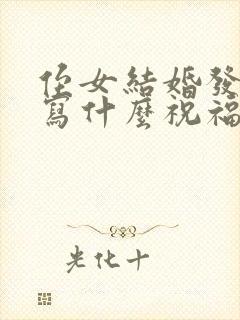 侄女結婚發
寫什麼祝福
光化十